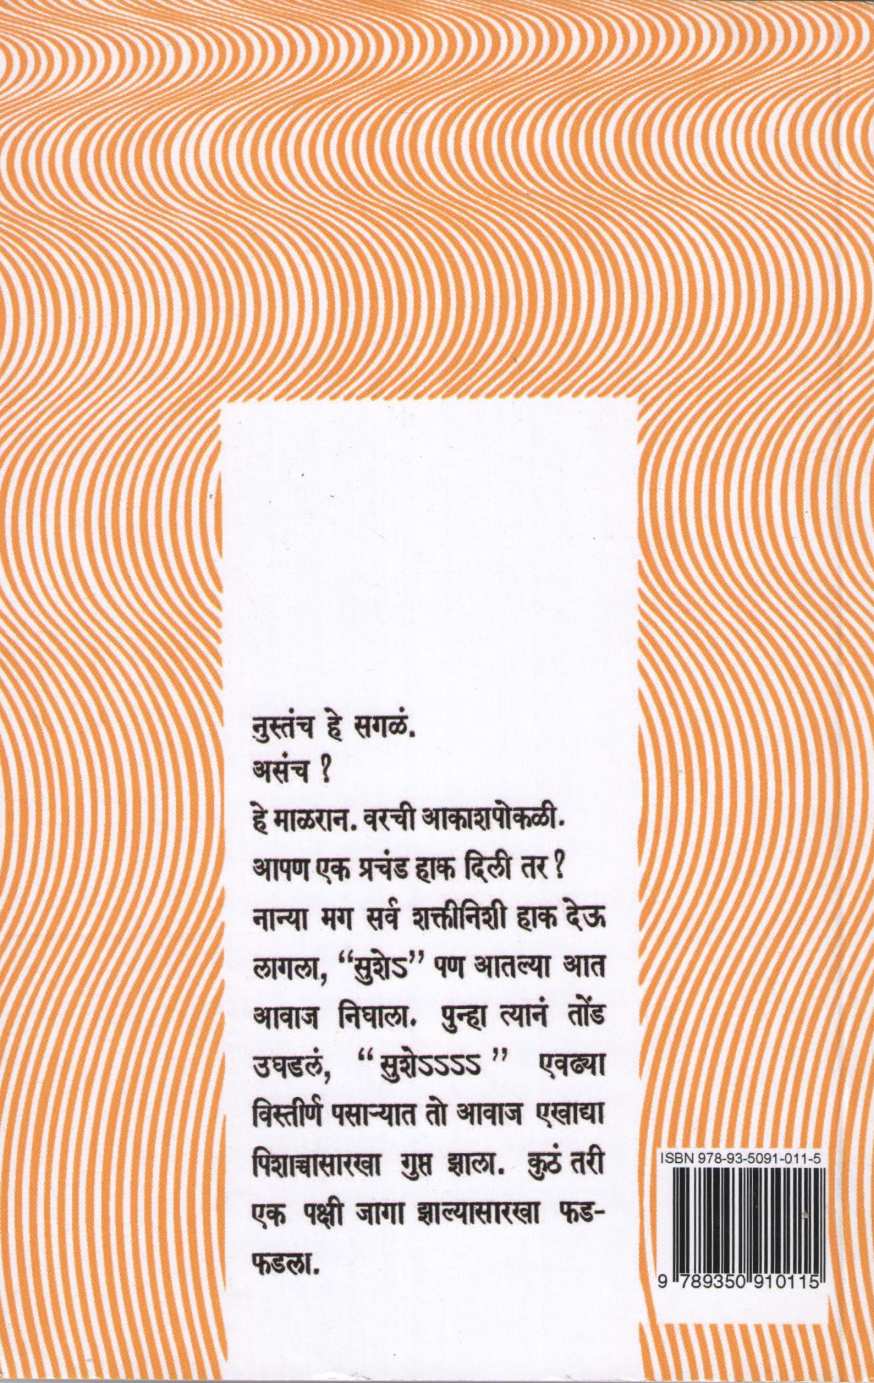 नुस्तंच हे सगळं.
असंच ?
हे माळरान. वरची आकाशपोकळी.
आपण एक प्रचंड हाक दिली तर ?
नान्या मग सर्व शक्तीनिशी हाक देऊ
लागला, “सुशेऽ” पण आतल्या आत
आवाज निघाला. पुन्हा त्यानं तोंड
उघडलं, “सुशेऽऽऽऽ” एवढ्या
विस्तीर्ण पसाऱ्यात तो आवाज एखाद्या
पिशाच्चासारखा गुप्त झाला. कुठं तरी
एक पक्षी जागा झाल्यासारखा फड-
फडला.
ISBN 978-93-5091-011-5
9 789350 910115